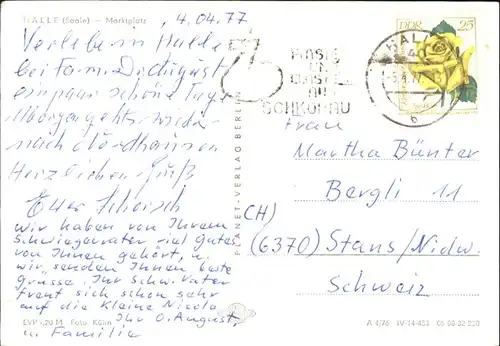 HALLE (Saale) — Marktplatz
4.04.77
Verlebe in Halle
bei Fam. Dr. August
ein paar schöne Tage
Morgen gehts wieder
nach Nordhausen
Herzlichen Gruß
Euer
Wir haben von Ihrem
Schwiegervater viel Gutes
von Ihnen gehört, u.
wir senden Ihnen beste
Grüsse. Ihr Schw.Vater
freut sich schon sehr
auf die kleine Nicola
Ihr O. August,
u. Familie
EVP -,20 M Foto: Kühn
PLANET-VERLAG BERLIN
PLASTE
UND
ELASTE
AUS
SCHKOPAU
HALLE
DDR 25
Frau
Martha Bünter
Bergli 11
(CH)
(6370) Stans/Nidw.
Schweiz
A 4/76 IV-14-483